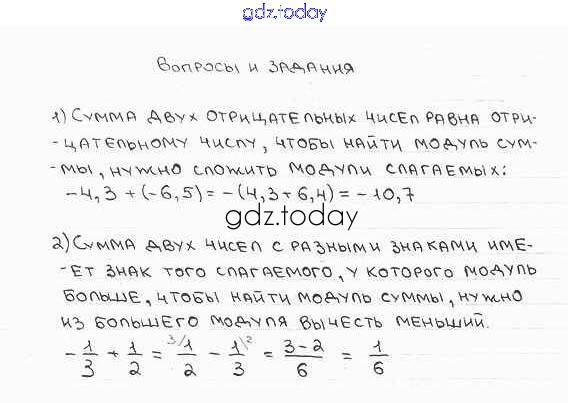 gdz.today
Вопросы и задания
1) Сумма двух отрицательных чисел равна отри-
-цательному числу, чтобы найти модуль сум-
-мы, нужно сложить модули слагаемых:
-4,3 + (-6,5) = -(4,3 + 6,4) = -10,7
gdz.today
2) Сумма двух чисел с разными знаками име-
-ет знак того слагаемого, у которого модуль
больше, чтобы найти модуль суммы, нужно
из большего модуля вычесть меньший.
-1/3 + 1/2 = 3/1/2 - 1\2/3 = 3-2/6 = 1/6